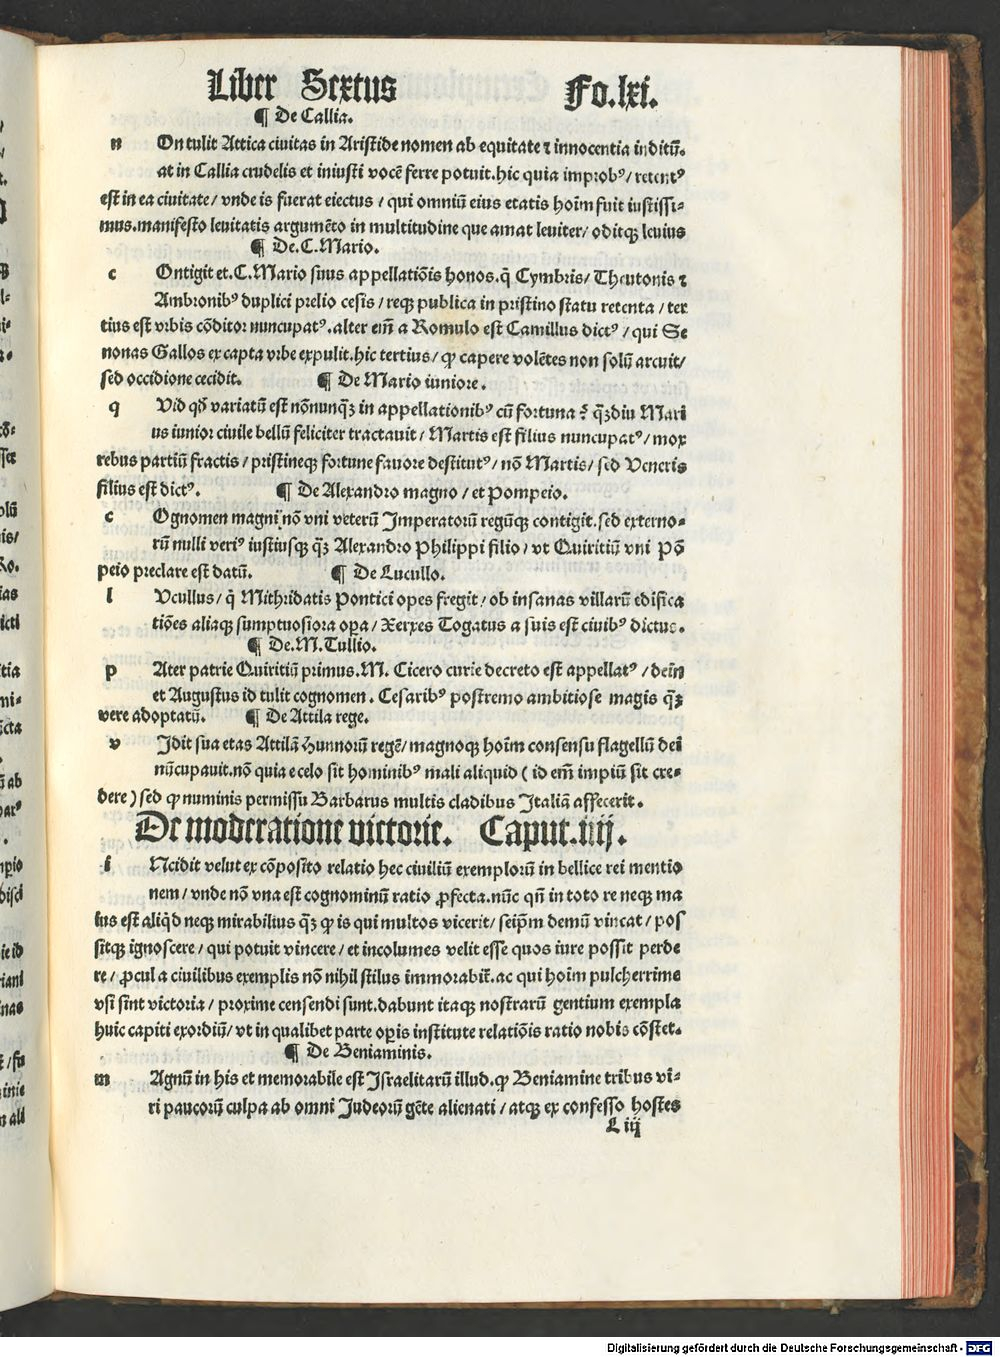 Liber Sextus Fo.lxi.
¶ De Callia.
n On tulit Attica ciuitas in Aristide nomen ab equitate ⁊ innocentia inditũ.
at in Callia crudelis et iniusti vocẽ ferre potuit.hic quia improbꝰ/ retentꝰ
est in ea ciuitate/ vnde is fuerat eiectus/ qui omniũ eius etatis hoĩm fuit iustissi⸗
mus.manifesto leuitatis argumẽto in multitudine que amat leuiter/ oditqꝫ leuius
¶ De.C.Mario.
c Ontigit et.C.Mario suus appellatiõis honos.q̃ Cymbris/ Theutonis ⁊
Ambronibꝰ duplici prelio cesis/ reqꝫ publica in pristino statu retenta/ ter
tius est vrbis cõditor nuncupatꝰ.alter em̃ a Romulo est Camillus dictꝰ/ qui Se
nonas Gallos ex capta vrbe expulit.hic tertius/ ꝙ capere volẽtes non solũ arcuit/
sed occidione cecidit. ¶ De Mario iuniore.
q Vid qđ variatũ est nõnunqꝫ in appellationibꝰ cũ fortuna ē qꝫdiu Mari
us iunior ciuile bellũ feliciter tractauit/ Martis est filius nuncupatꝰ/ mox
rebus partiũ fractis/ pristineqꝫ fortune fauore destitutꝰ/ nõ Martis/ sed Veneris
filius est dictꝰ. ¶ De Alexandro magno/ et Pompeio.
c Ognomen magni nõ vni veterũ Imperatorũ regũqꝫ contigit.sed externo⸗
rũ nulli veriꝰ iustiusqꝫ qꝫ Alexandro Philippi filio/ vt Quiritiũ vni Põ
peio preclare est datũ. ¶ De Lucullo.
l Vcullus/ q̃ Mithridatis Pontici opes fregit/ ob insanas villarũ edifica
tiões aliaqꝫ sumptuosiora oꝑa/ Xerxes Togatus a suis est ciuibꝰ dictus.
¶ De.M.Tullio.
p Ater patrie Quiritiũ primus.M. Cicero curie decreto est appellatꝰ/ deĩn
et Augustus id tulit cognomen. Cesaribꝰ postremo ambitiose magis qꝫ
vere adoptatũ. ¶ De Attila rege.
v Idit sua etas Attilã Hunnorũ regẽ/ magnoqꝫ hoĩm consensu flagellũ dei
nũcupauit.nõ quia e celo sit hominibꝰ mali aliquid ( id em̃ impiũ sit cre⸗
dere ) sed ꝙ numinis permissu Barbarus multis cladibus Italiã affecerit.
De moderatione victorie. Caput.iiij.
i Ncidit velut ex cõposito relatio hec ciuiliũ exemplorũ in bellice rei mentio
nem/ vnde nõ vna est cognominũ ratio ꝓfecta.nũc qñ in toto re neqꝫ ma
ius est aliq̃d neqꝫ mirabilius qꝫ ꝙ is qui multos vicerit/ seip̃m demũ vincat/ pos
sitqꝫ ignoscere/ qui potuit vincere/ et incolumes velit esse quos iure possit perde
re/ ꝓcul a ciuilibus exemplis nõ nihil stilus immorabit̃.ac qui hoĩm pulcherrime
vsi sint victoria/ proxime censendi sunt.dabunt itaqꝫ nostrarũ gentium exempla
huic capiti exordiũ/ vt in qualibet parte oꝑis institute relatiõis ratio nobis cõstet.
¶ De Beniaminis.
m Agnũ in his et memorabile est Israelitarũ illud.ꝙ Beniamine tribus vi⸗
ri paucorũ culpa ab omni Judeorũ gẽte alienati/ atqꝫ ex confesso hostes
L iij
Digitalisierung gefördert durch die Deutsche Forschungsgemeinschaft - DFG